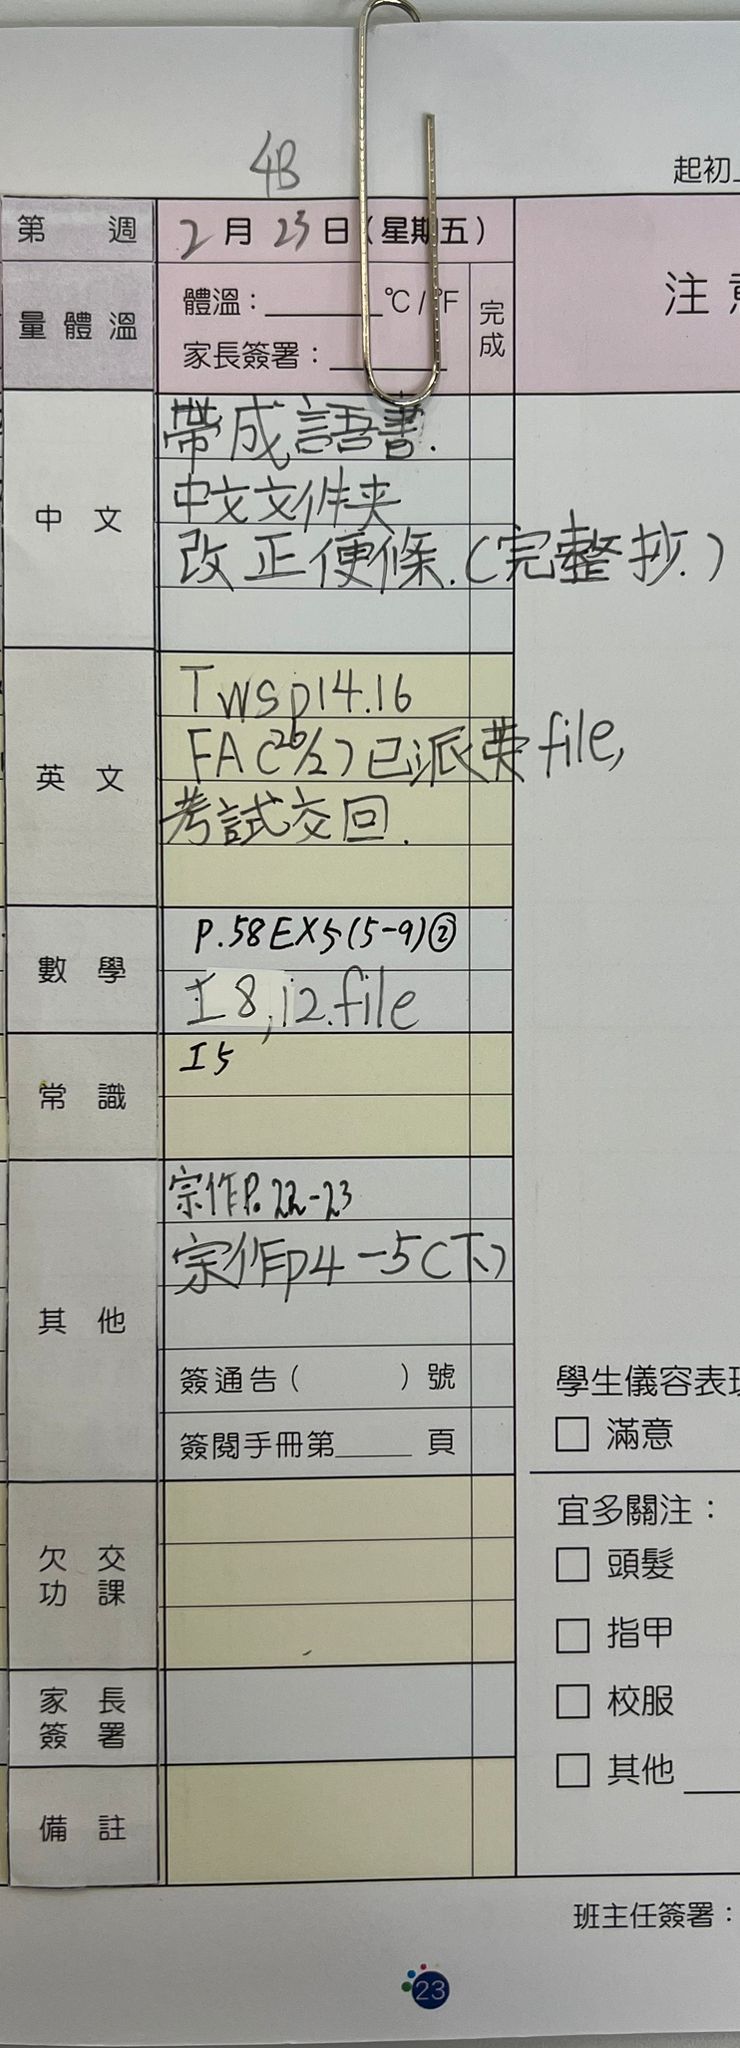 4B
起初
第 週
2月23日(星期五)
注
量體溫
體溫：______°C/°F
家長簽署：______
完成
中文
帶成語書.
中文文件夹
改正便條.(完整抄.)
英文
TWS p14.16
FA(26/2)已派带file,
考試交回.
數學
P.58EX5(5-9)②
I8,12.file
常識
I5
其他
宗作P.22-23
宗作p4-5(下)
簽通告( )號
簽閱手冊第____頁
學生儀容表現
□ 滿意
宜多關注：
□ 頭髮
□ 指甲
□ 校服
□ 其他
欠交功課
家長簽署
備註
班主任簽署：
23